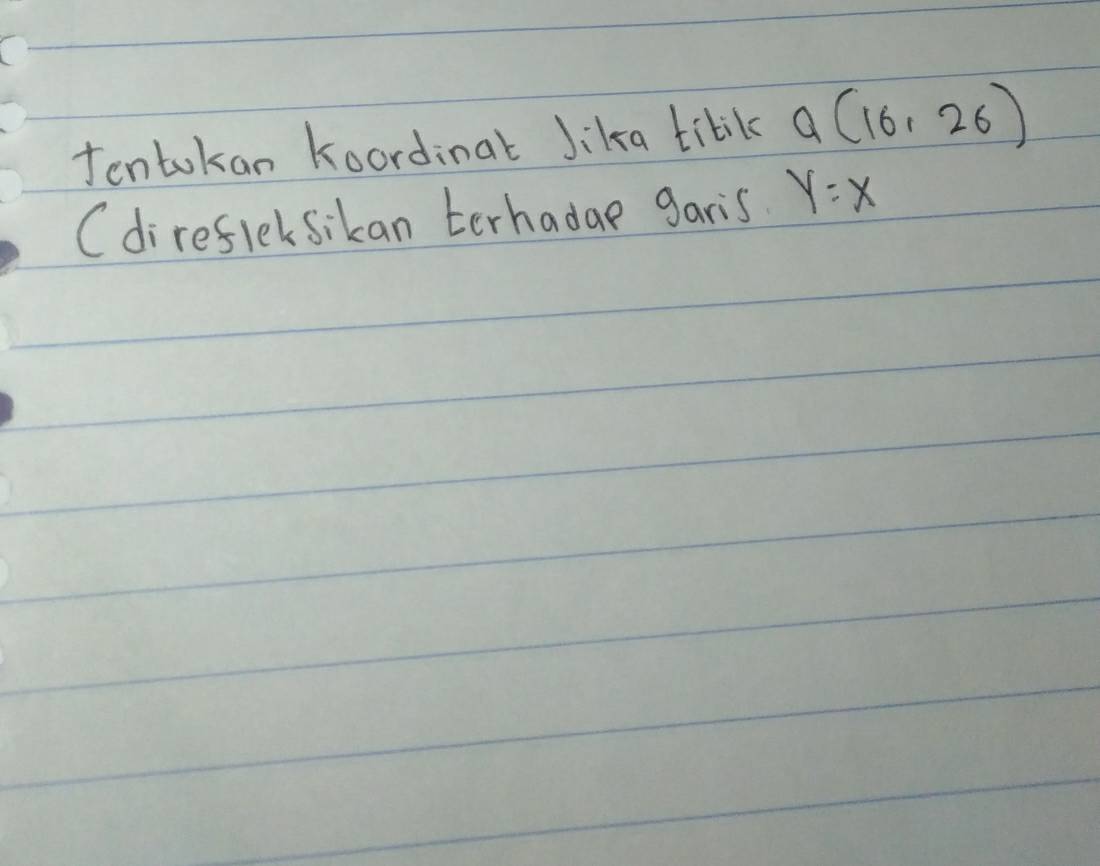 Tentukan koordinat Jika titik a (16, 26)
(direfleksikan terhadap garis. Y=X